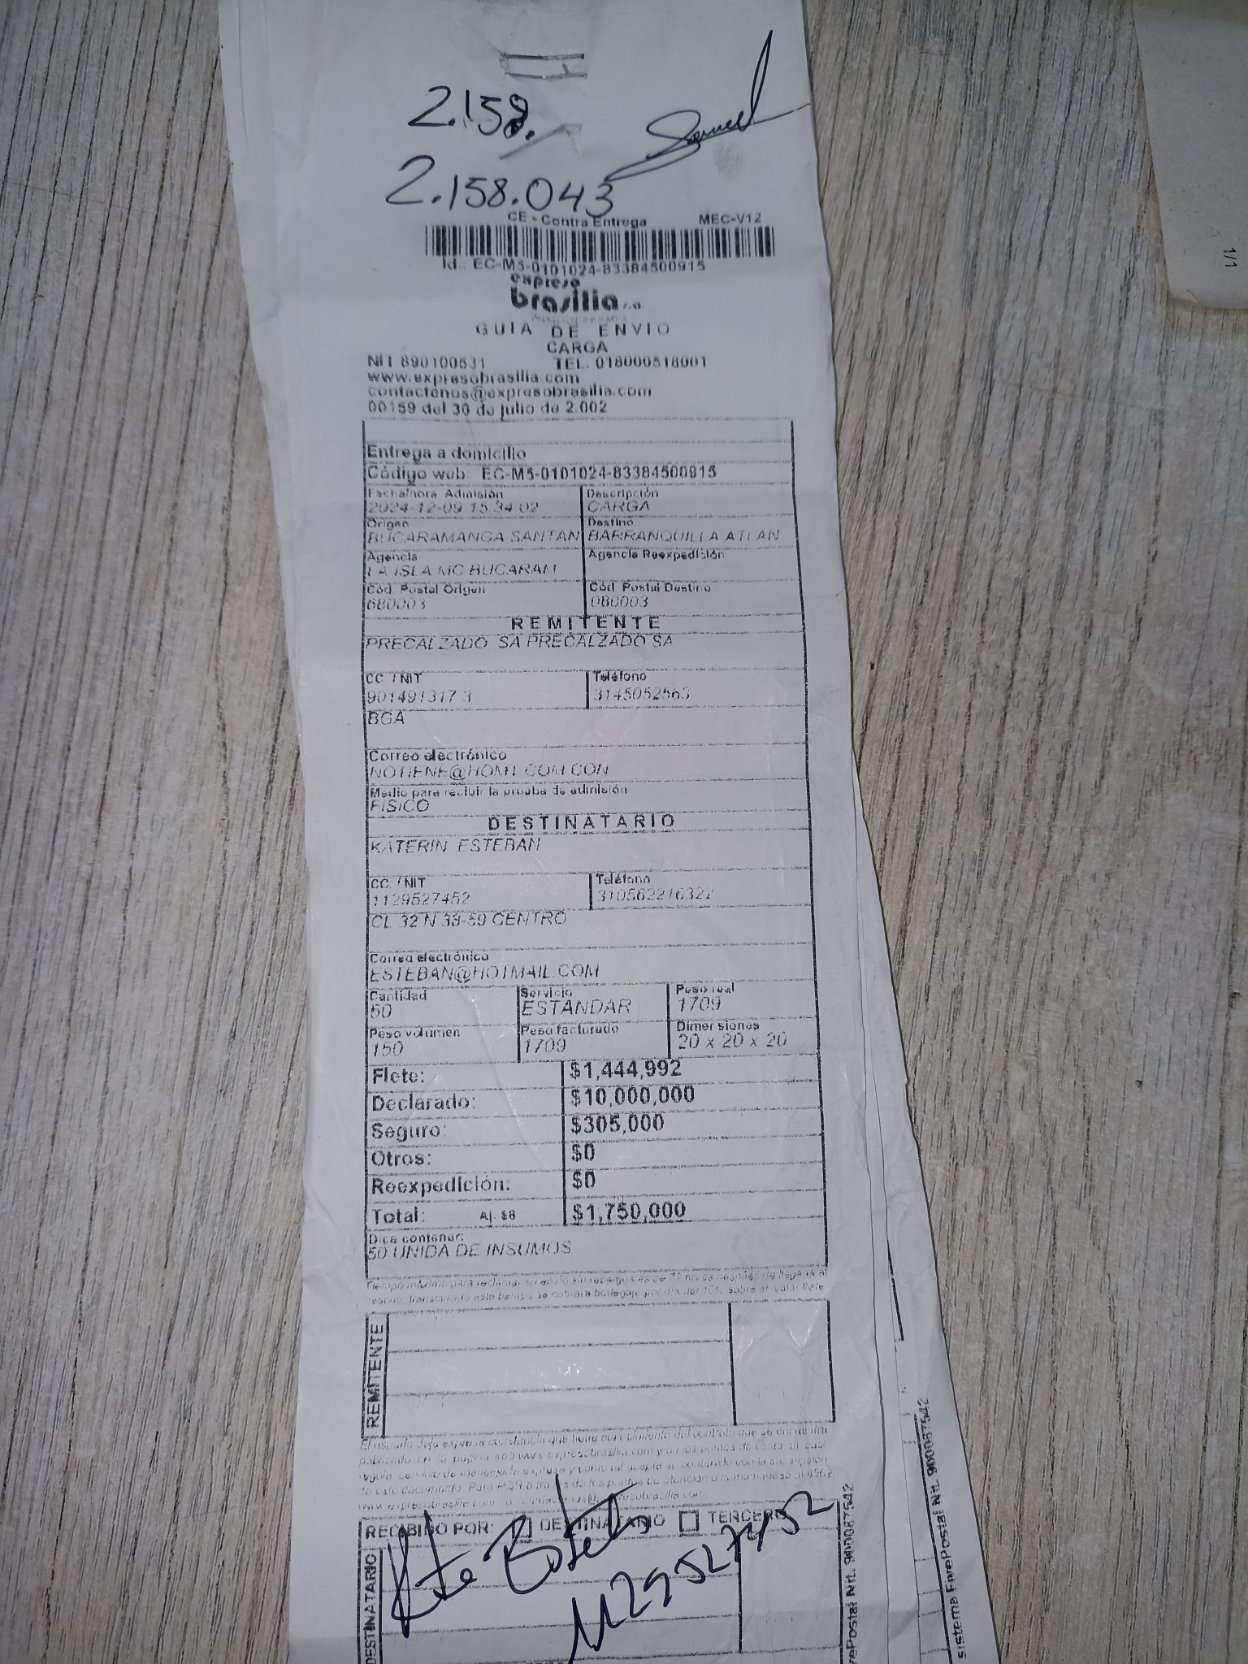 2.158.
2.158.043
CE - Contra Entrega MEC-V12
Id.: EC-M5-0101024-83384500915
expreso
brasilia s.a.
GUIA DE ENVIO
CARGA
NIT 890100531 TEL. 018000518001
www.expresobrasilia.com
contactenos@expresobrasilia.com
00159 del 30 de julio de 2.002
Entrega a domicilio
Código web: EC-M5-0101024-83384500915
Fecha/hora Admisión Descripción
2024-12-09 15:34:02 CARGA
Origen Destino
BUCARAMANGA SANTAN BARRANQUILLA ATLAN
Agencia Agencia Reexpedición
LA ISLA MC BUCARAM
Cód. Postal Origen Cód. Postal Destino
680003 080003
REMITENTE
PRECALZADO SA PRECALZADO SA
CC. / NIT Teléfono
901491317 3 3145052563
BGA
Correo electrónico
NOTIENE@HOM1.COM.CON
Medio para recibir la prueba de admisión
FISICO
DESTINATARIO
KATERIN ESTEBAN
CC. / NIT Teléfono
1129527452 310562216322
CL 32 N 38-59 CENTRO
Correo electrónico
ESTEBAN@HOTMAIL.COM
Cantidad Servicio Peso real
50 ESTANDAR 1709
Peso volumen Peso facturado Dimensiones
150 1709 20 x 20 x 20
Flete: $1,444,992
Declarado: $10,000,000
Seguro: $305,000
Otros: $0
Reexpedición: $0
Total: Aj. $8 $1,750,000
Dice contener:
50 UNIDA DE INSUMOS
REMITENTE
RECIBIDO POR: DESTINATARIO TERCERO
DESTINATARIO
1129527452
ePostal Nit. 900087542
sistema EnvePostal Nit. 900087542
1/1